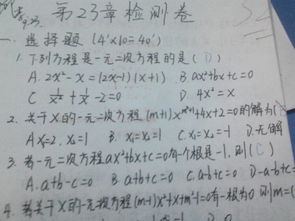 9.23
第23章检测卷
一. 选择题 (4'×10=40')
1. 下列方程是一元二次方程的是 (D)
A. 2x²-x=(2x-1)(x+1) B. ax²+bx+c=0
C. 1/x²+1/x-2=0 D. 4x²=x
2. 关于x的一元二次方程(m+1)x +4x+2=0的解为(
A x₁=2. x₂=1 B. x₁=x₂=1 C. x₁=x₂=-1 D. 无解
3. 若一元二次方程ax²+bx+c=0有一个根是-1. 则(C)
A. a+b-c=0 B. a+b+c=0 C. a-b+c=0 D. -a-b+
4. 若关于x的一元二次方程(m-1)x²+x+m²-1=0有一根为0 则m=(